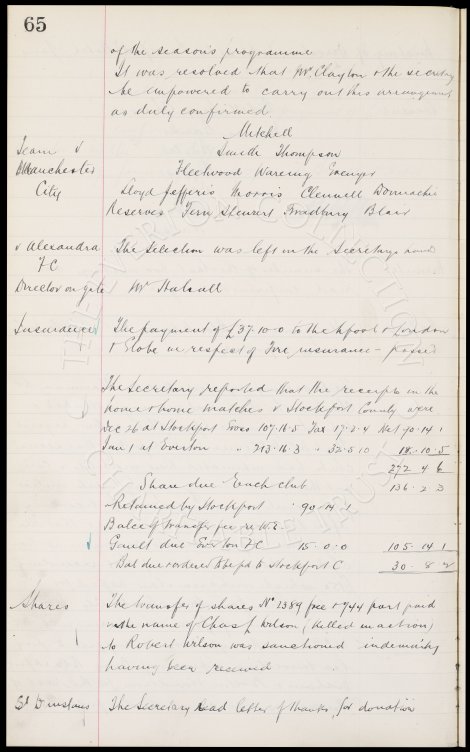 65
of the season's programme
It was resolved that Mr Clayton & the secretary
be empowered to carry out this arrangement
as duly confirmed
Mitchell
Team v Smith Thompson
Manchester Fleetwood Wareing Wenger
City Lloyd Jefferis Morris Clennell Donnachie
Reserves Fern Stewart Bradbury Blair
v Alexandra The selection was left in the Secretarys hands
FC
Director on gate Mr Halsall
Insurance The payment of £37-10-0 to the Lpool & London
& Globe in respect of Fire insurance - passed
The Secretary reported that the receipts in the
home & home matches v Stockport County were
Dec 26 at Stockport Gross 107.16.5 Tax 17.2.4 Net 90.14.1
Jan 1 at Everton " 213.16.3 " 32.5.10 181.10.5
272 4 6
Share due Each club 136.2.3
Retained by Stockport 90-14-1
Balce of transfer fee re W.
Gault due Everton FC 15.0.0 105.14 1
Bal due & ordered to be pd to Stockport C 30.8.2
Shares The transfer of shares No 1389 free & 744 part paid
in the name of Chas J Wilson, (killed in action)
to Robert Wilson was sanctioned indemnity
having been received
St Dunstans The Secretary read letter of thanks for donation
THE EVERTON COLLECTION
CHARITABLE TRUST